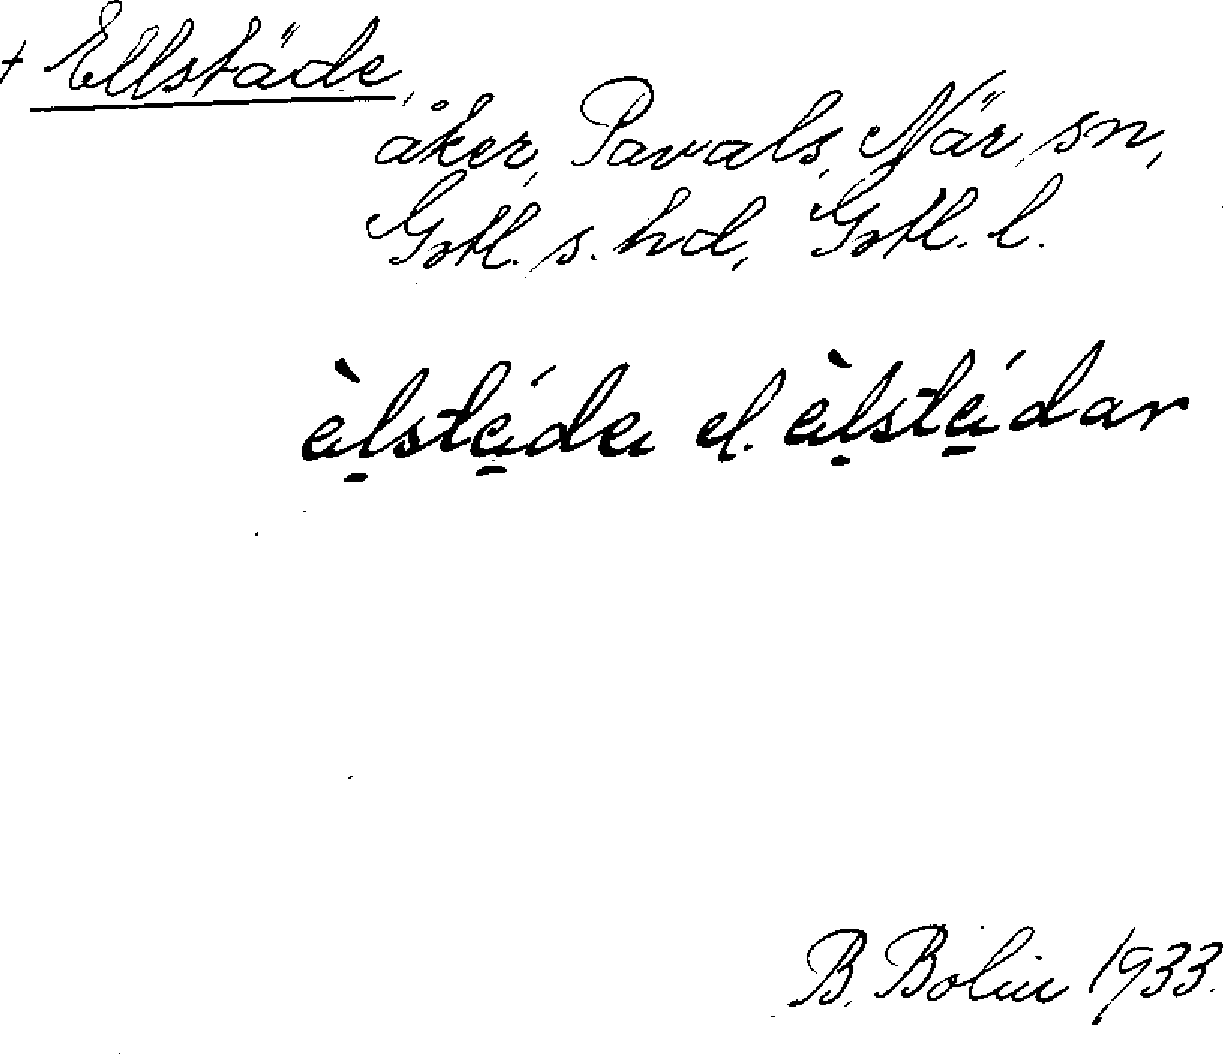 + Ellstäde,
åker, Pavals, När sn,
Gotl. s. hd, Gotl. l.
älstäde el. älstädar
B. Bolin 1933.